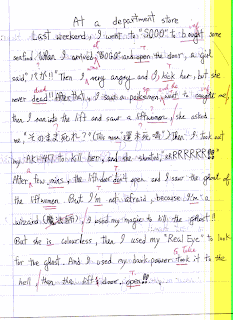 At a department store
Last weekend, I went to "SOGO" to bought some
seafood. When I arrived "SOGO" and open the door, a girl
said, "バカ!!" Then I very angry and kick her, but she
never dead!! After that, I saw a salesman want to bought me,
then I run into the lift and saw a liftwomen, she asked
me, "そのまま死れ?" (This mean ) Then I took out
my "AK-47" to kill her, and she shouted, "RRRRRR!!"
After few mins, the lift door didn't open and I saw the ghost of
the liftwomen. But I'm not afraid, because I'm a
wizard (魔法師), I used my magic to kill the ghost!!
But she is colourless, Then I used my "Real Eye" to look
for the ghost. And I used my dark power took it to the
hell, then the lift door open!!